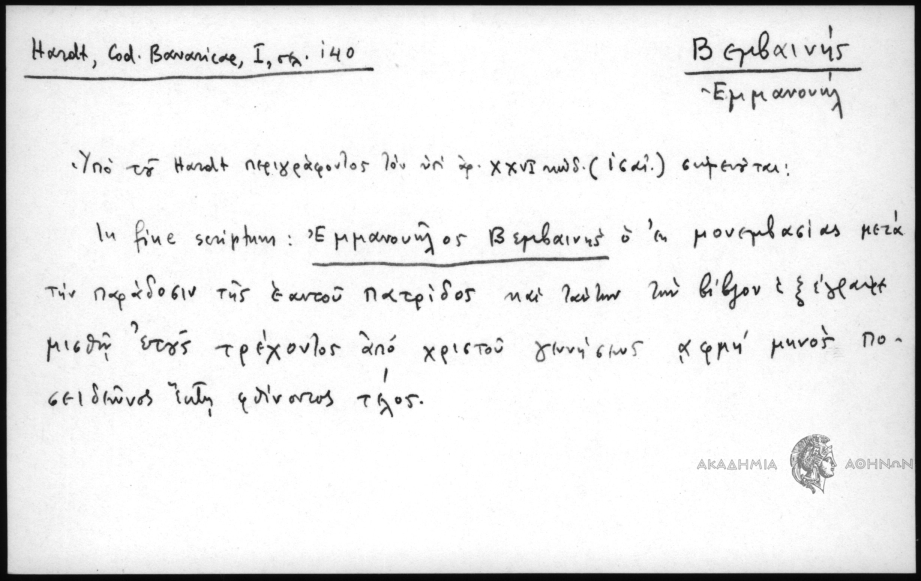 Hardt, Cod. Bavaricae, I, σελ. 140
Βεμβαινής
Ἐμμανουήλ
Ὑπὸ τοῦ Hardt περιγράφοντος τὸν ὑπ' ἀρ. XXVI κώδ. (ἰσαϊ.) σημειοῦται:
In fine scriptum: Ἐμμανουῆλος Βεμβαινῆς ὁ ἐκ μονεμβασίας μετὰ
τὴν παράδοσιν τῆς ἑαυτοῦ πατρίδος καὶ ταύτην τὴν βίβλον ἐξέγραψε
μισθῷ ἔτους τρέχοντος ἀπό χριστοῦ γεννήσεως ͵αφμή μηνὸς πο-
σειδεῶνος ἕκτῃ φθίνοντος τέλος.
ΑΚΑΔΗΜΙΑ ΑΘΗΝΩΝ